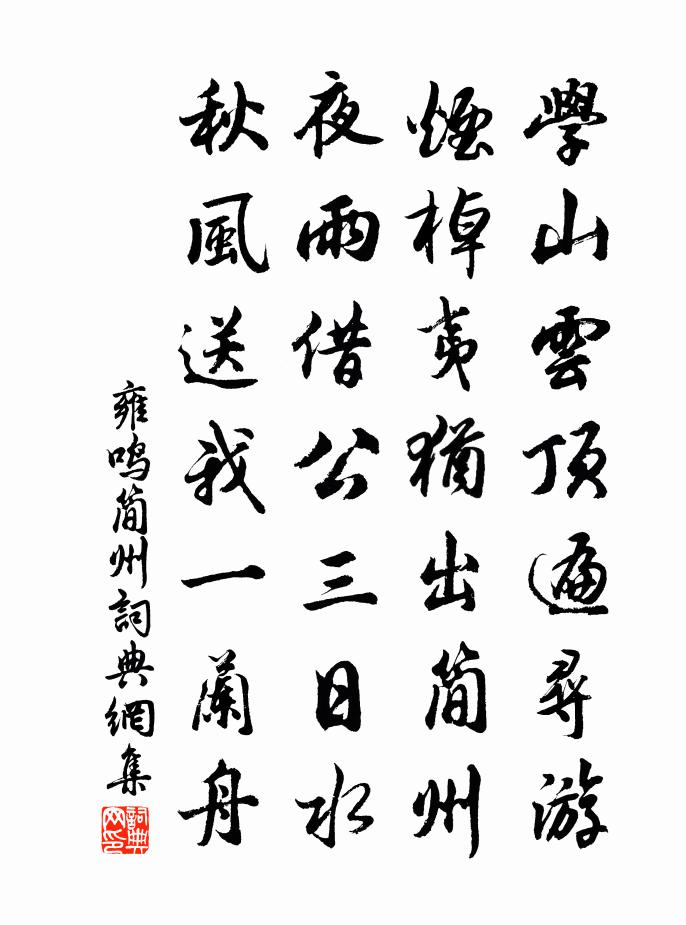 學山雲頂遍尋游
煙棹夷猶出簡州
夜雨借公三日水
秋風送我一蘭舟
雍鳴簡州詞典網集
詞典
网印